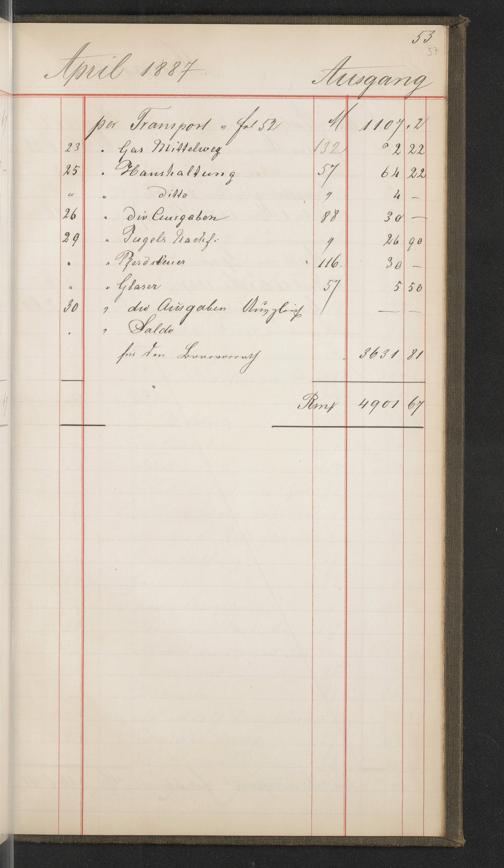 53
57
April 1887. Ausgang
per Transport " fol 52 M 1107.21
23 " Gas Mittelweg 132 " 2 22
25 " Haushaltung 57 64 22
" " ditto " 4 —
26 " div Ausgaben 88 30 —
29 " Nachf. " 26 90
" " Pferdesteuer " 116 30 —
" " Glaser 57 5 50
30 " div Ausgaben Ausgleich — —
" " Saldo
für den 3631 81
Rmk 4901 67